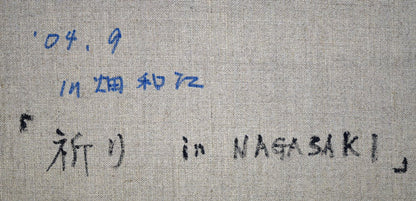 '04. 9
in 畑和江
「祈り in NAGASAKI」